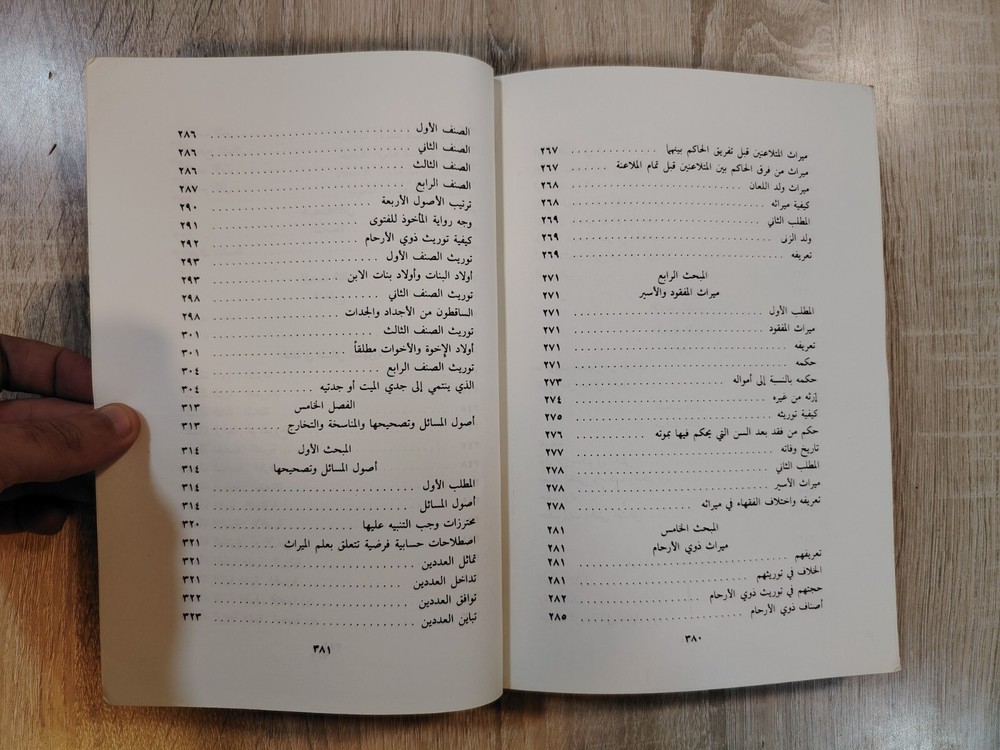 ميراث المتلاعنين قبل تفريق الحاكم بينهما ........ ٢٦٧
ميراث من فرق الحاكم بين المتلاعنين قبل تمام الملاعنة ...... ٢٦٧
ميراث ولد اللعان ........ ٢٦٨
كيفية ميراثه ........ ٢٦٨
المطلب الثاني ........ ٢٦٩
ولد الزنى ........ ٢٦٩
تعريفه ........ ٢٦٩
المبحث الرابع ٢٧١
ميراث المفقود والأسير ٢٧١
المطلب الأول ........ ٢٧١
ميراث المفقود ........ ٢٧١
تعريفه ........ ٢٧١
حكمه ........ ٢٧١
حكمه بالنسبة إلى أمواله ........ ٢٧٣
إرثه من غيره ........ ٢٧٤
كيفية توريثه ........ ٢٧٥
حكم من فقد بعد السن التي يحكم فيها بموته ........ ٢٧٦
تاريخ وفاته ........ ٢٧٧
المطلب الثاني ........ ٢٧٨
ميراث الأسير ........ ٢٧٨
تعريفه واختلاف الفقهاء في ميراثه ........ ٢٧٨
المبحث الخامس ٢٨١
ميراث ذوي الأرحام ٢٨١
تعريفهم ........ ٢٨١
الخلاف في توريثهم ........ ٢٨١
حجتهم في توريث ذوي الأرحام ........ ٢٨٢
أصناف ذوي الأرحام ........ ٢٨٥
٣٨٠
الصنف الأول ........ ٢٨٦
الصنف الثاني ........ ٢٨٦
الصنف الثالث ........ ٢٨٦
الصنف الرابع ........ ٢٨٧
ترتيب الأصول الأربعة ........ ٢٩٠
وجه رواية المأخوذ للفتوى ........ ٢٩١
كيفية توريث ذوي الأرحام ........ ٢٩٢
توريث الصنف الأول ........ ٢٩٣
أولاد البنات وأولاد بنات الابن ........ ٢٩٣
توريث الصنف الثاني ........ ٢٩٨
الساقطون من الأجداد والجدات ........ ٢٩٨
توريث الصنف الثالث ........ ٣٠١
أولاد الإخوة والأخوات مطلقاً ........ ٣٠١
توريث الصنف الرابع ........ ٣٠٤
الذي ينتمي إلى جدي الميت أو جدتيه ........ ٣٠٤
الفصل الخامس ٣١٣
أصول المسائل وتصحيحها والمناسخة والتخارج ........ ٣١٣
المبحث الأول ٣١٤
أصول المسائل وتصحيحها ٣١٤
المطلب الأول ........ ٣١٤
أصول المسائل ........ ٣١٤
محترزات وجب التنبيه عليها ........ ٣٢٠
اصطلاحات حسابية فرضية تتعلق بعلم الميراث ........ ٣٢١
تماثل العددين ........ ٣٢١
تداخل العددين ........ ٣٢١
توافق العددين ........ ٣٢٢
تباين العددين ........ ٣٢٣
٣٨١